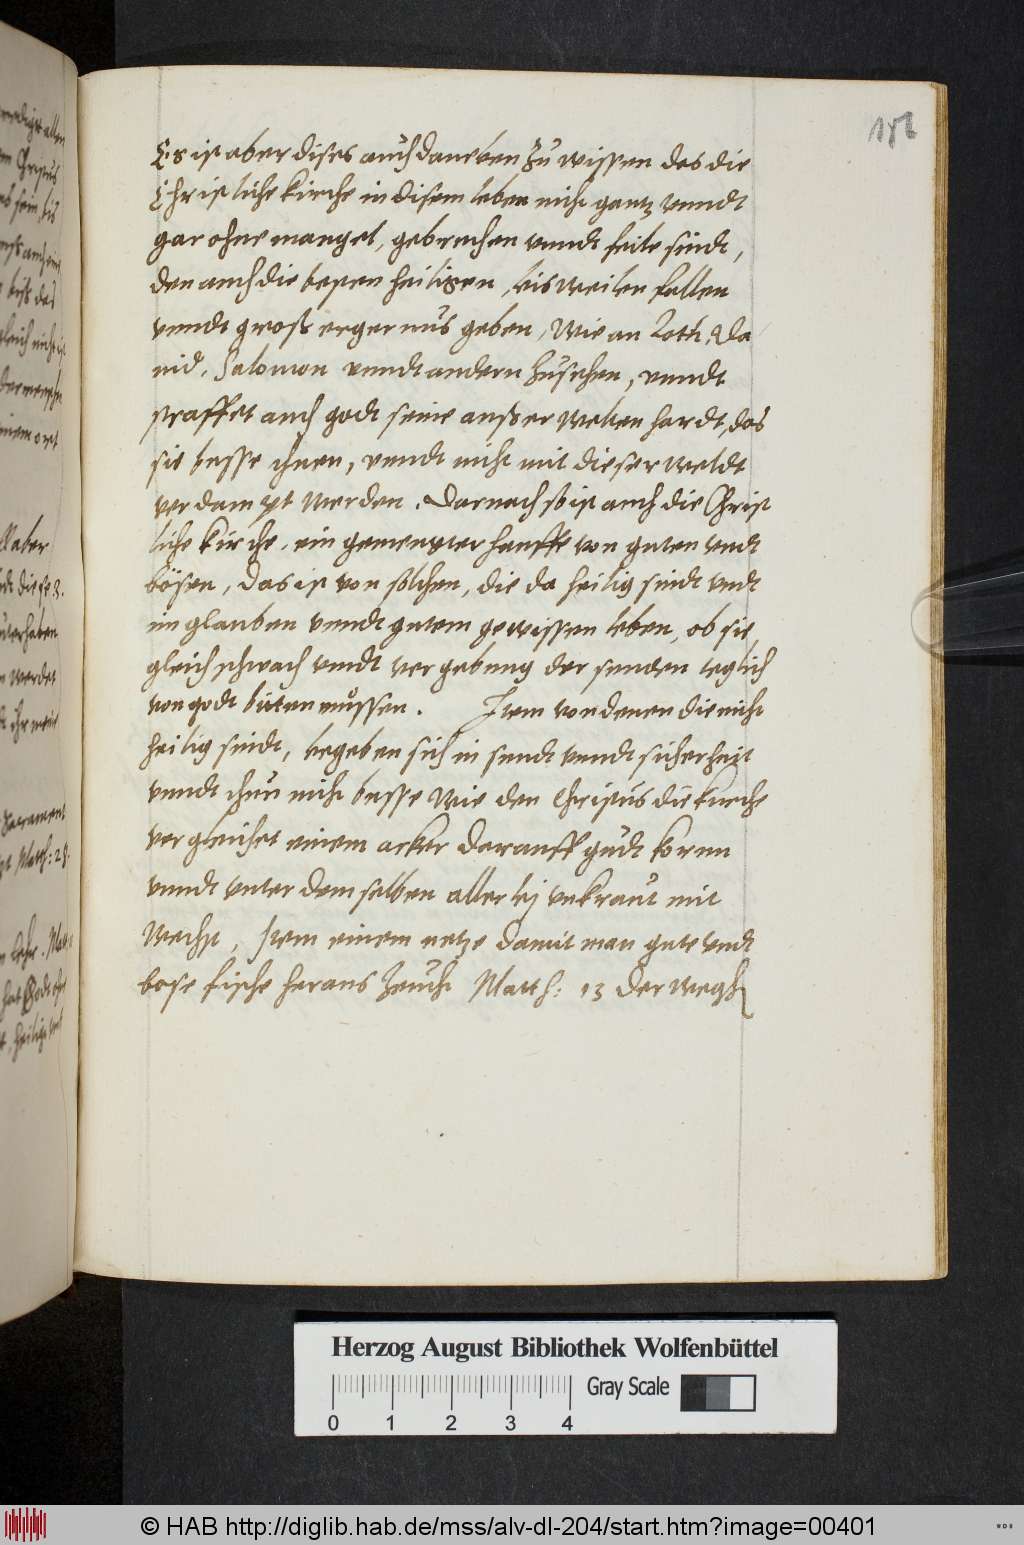 182
Es ist aber dises auch daneben zu wissen das die
Christliche kirche in disem leben nicht gantz vnndt
gar ohne mangel, gebrechen vnndt feile sindt,
den auch die besten heiligen, bisweilen fallen
vnndt groß ergernus geben, Wie an Loth, Da
uid, Salomon vnndt andern zusehen, vnndt
straffet auch godt seine außerwelten hardt, das
sie busse thuen, vnndt nicht mit dieser weldt
verdampt werden. Darnach so ist auch die Christ
liche kirche, ein gemengter hauffe von guten vndt
bösen, das ist von solchen, die da heilig sindt vndt
im glauben vnndt gutem gewissen leben, ob sie
gleich schwach vnndt vergebung der sunden teglich
von godt bitten müssen. Item von denen die nicht
heilig sindt, begeben sich in sundt vnndt sicherheit
vnndt thun nicht busse wie den Christus die kirche
vergleichet einem acker darauff gudt kornn
vnndt vnter dem selben allerlej vnkraut mit
wechst, Item einem netze damit man gute vndt
bose fische heraus zeucht Matth: 13 Derwegh
aber
Sacrament
Matth: 28.
Herzog August Bibliothek Wolfenbüttel
Gray Scale
0 1 2 3 4
© HAB http://diglib.hab.de/mss/alv-dl-204/start.htm?image=00401